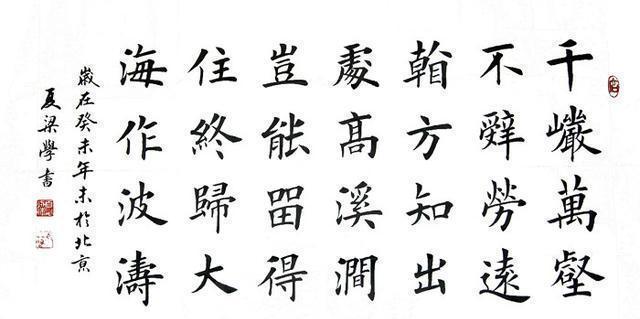 千巖萬壑
不辤勞遠
方知出
處髙溪澗
豈能留得
住終歸大
海作波濤
歲在癸未年末於北京
夏梁學書